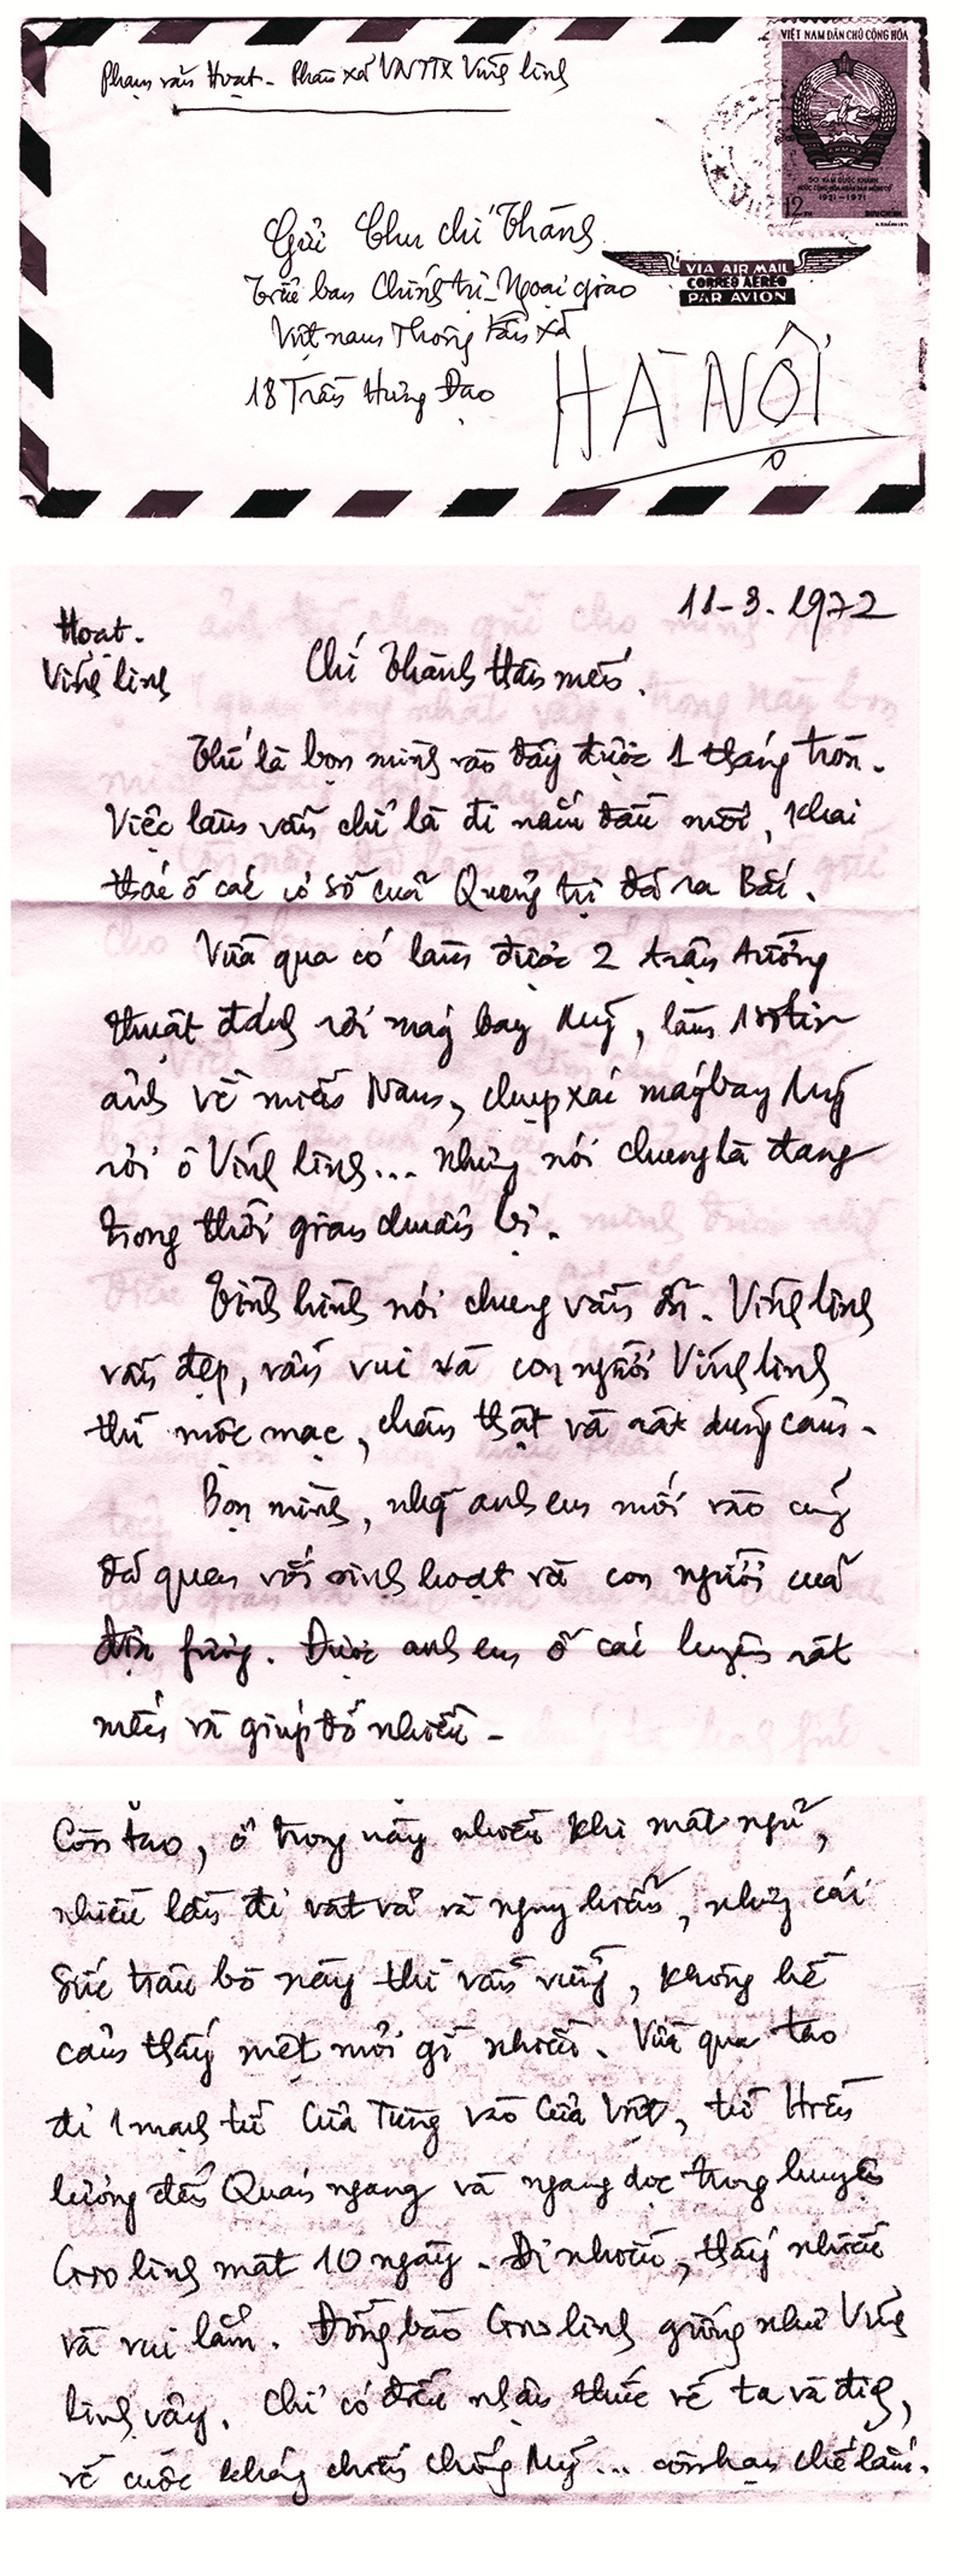 Phạm văn Hoạt - Phân xã VNTTX Vĩnh linh
VIỆT NAM DÂN CHỦ CỘNG HÒA
50 NĂM QUỐC KHÁNH
NƯỚC CỘNG HÒA NHÂN DÂN MÔNG CỔ
1921-1971
12 BƯU CHÍNH
Gửi Chu chí Thành
VIA AIR MAIL
CORREO AEREO
PAR AVION
Tiểu ban Chính trị - Ngoại giao
Việt nam Thông tấn xã
18 Trần Hưng Đạo
HÀ NỘI
11-3-1972
Hoạt.
Vĩnh linh
Chí Thành thân mến.
Thế là bọn mình vào đây được 1 tháng tròn.
Việc làm vẫn chỉ là đi nắm đầu mối, khai
thác ở các cơ sở của Quảng trị đã ra Bắc.
Vừa qua có làm được 2 trận tường
thuật đánh rơi máy bay Mỹ, làm tin
ảnh về miền Nam, chụp xác máy bay Mỹ
rơi ở Vĩnh linh... Nhưng nói chung là đang
trong thời gian chuẩn bị.
Tình hình nói chung vẫn ổn. Vĩnh linh
vẫn đẹp, vẫn vui và con người Vĩnh linh
thì mộc mạc, chân thật và rất dũng cảm.
Bọn mình, nhg anh em mới vào cũng
đã quen với sinh hoạt và con người của
địa fương. Được anh em ở các huyện rất
mến và giúp đỡ nhiều -
Còn tao, ở trong này nhiều khi mất ngủ,
nhiều lần đi vất vả và nguy hiểm, nhưng cái
sức trâu bò này thì vẫn vững, không hề
cảm thấy mệt mỏi gì nhiều. Vừa qua tao
đi 1 mạch từ Cửa Tùng vào Cửa Việt, từ Hiền
lương đến Quán ngang và ngang dọc trong huyện
Gio linh mất 10 ngày. Đi nhiều, thấy nhiều
và vui lắm. Đồng bào Gio linh giống như Vĩnh
linh vậy. Chỉ có điều nhận thức về ta và địch,
về cuộc kháng chiến chống Mỹ... còn hạn chế lắm.